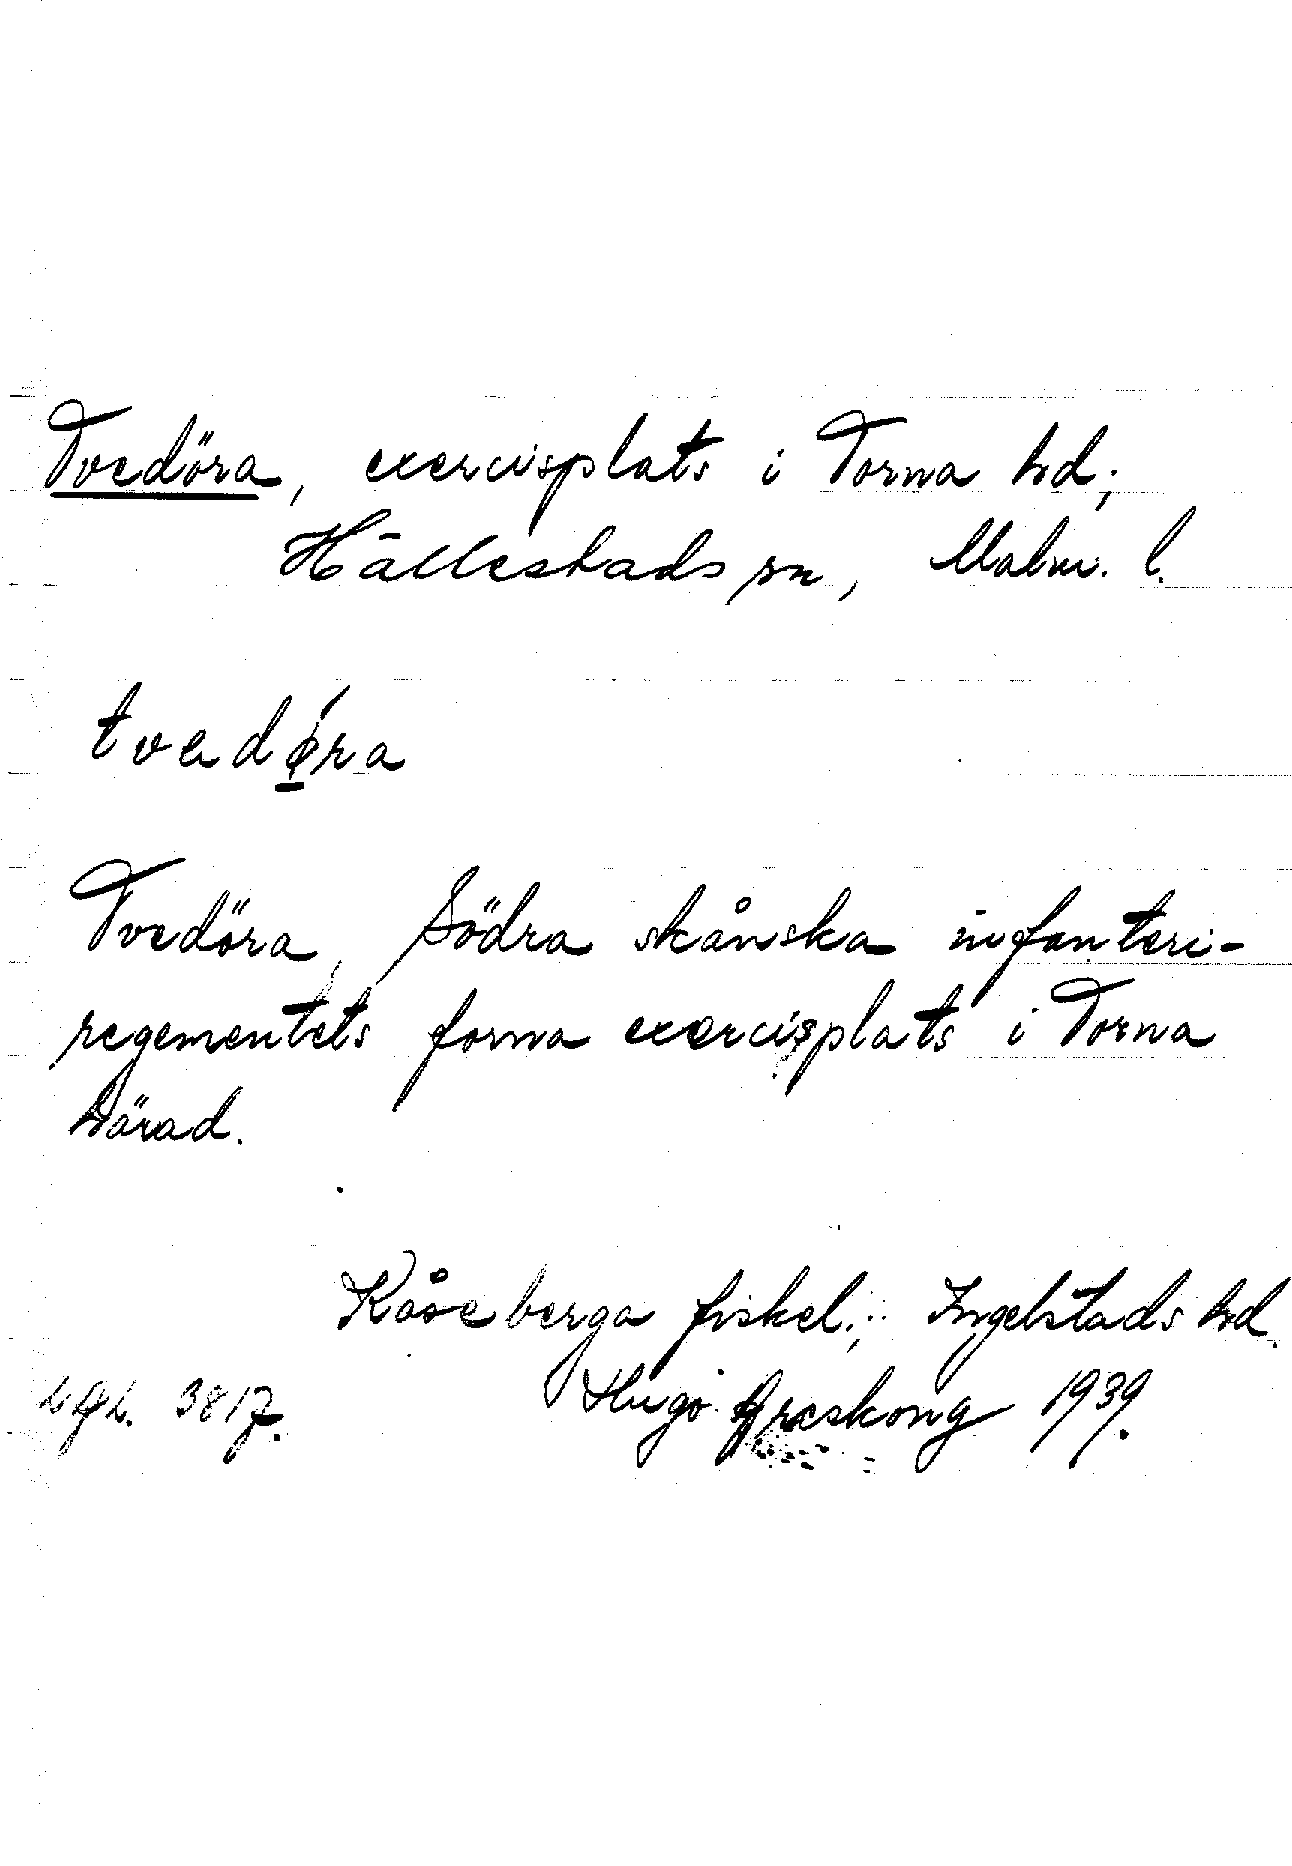 Tvedöra, exercisplats i Torna hd;
Hällestads sn, Malm. l.
tvadǿra
Tvedöra, Södra skånska infanteri-
regementets forna exercisplats i Torna
härad.
Kåseberga fiskel.; Ingelstads hd.
3817. Hugo Areskoug 1939.